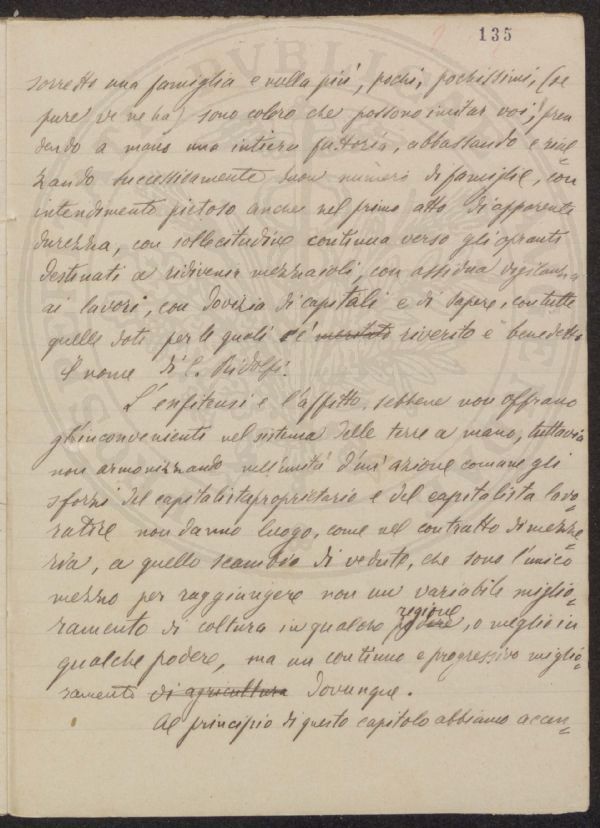 135
sorretto una famiglia e nulla più, pochi, pochissimi, (se
pure ve ne ha) sono coloro che possono imitar voi, pren
dendo a mano una intiera fattoria, abbassando e rial=
zando successivamente buon numero di famiglie, con
intendimento pietoso anche nel primo atto di apparente
durezza, con sollecitudine continua verso gli opranti
destinati a ridivenir mezzaioli, con assidua vigilanza
ai lavori, con dovizia di capitali e di sapere, con tutte
quelle doti per le quali è meritato riverito e benedetto
il nome di C. Ridolfi.
L'enfiteusi e l'affitto, sebbene non offrano
gl'inconvenienti nel sistema delle terre a mano, tuttavia
non armonizzando nell'unità d'un'azione comune gli
sforzi del capitalista proprietario e del capitalista lavo=
ratore non danno luogo, come nel contratto di mezze=
ria, a quello scambio di vedute, che sono l'unico
mezzo per raggiungere non un variabile miglio=
ramento di coltura in qualche podere regione, o meglio in
qualche podere, ma un continuo e progressivo miglio=
ramento di agricultura dovunque.
Al principio di questo capitolo abbiamo accen=